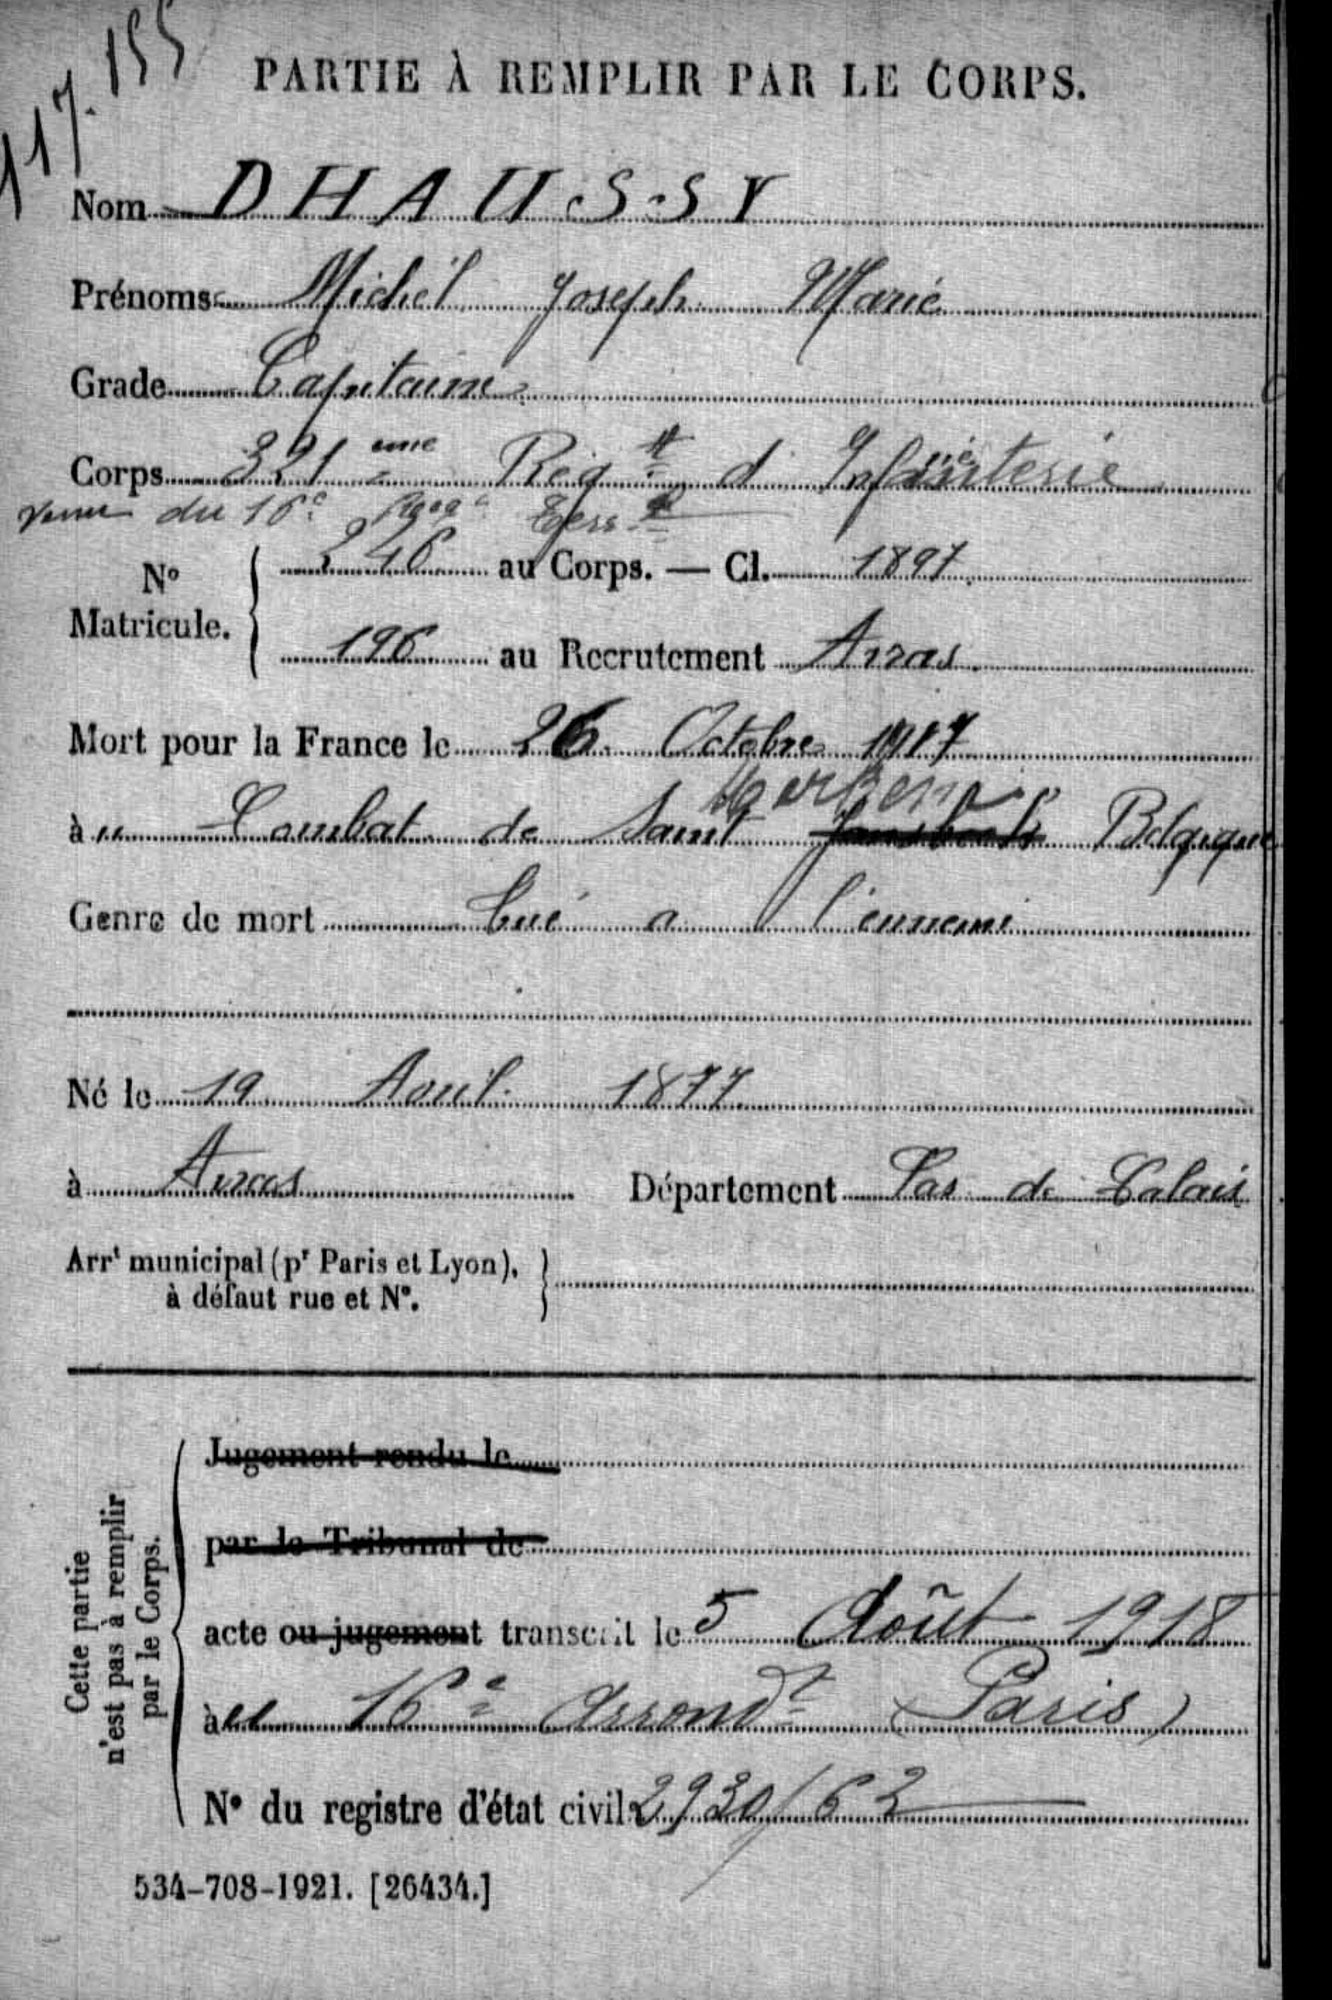 117.155
PARTIE À REMPLIR PAR LE CORPS.
Nom DHAUSSY
Prénoms Michel Joseph Marie
Grade Capitaine
Corps 321 eme Reg t d' Infanterie
venu du 16e Terr al
N° Matricule. 246 au Corps. — Cl. 1897
196 au Recrutement Arras
Mort pour la France le 26 Octobre 1917
Merkem
àu Combat de Saint Belgique
Genre de mort tué a l'ennemi
Né le 19 Aout 1877
à Arras Département Pas de Calais
Arrt municipal (pr Paris et Lyon),
à défaut rue et N°.
Cette partie
n'est pas à remplir
par le Corps.
Jugement rendu le
par le Tribunal de
acte ou jugement transcrit le 5 Août 1918
àu 16e Arrondt (Paris)
N° du registre d'état civil 2930/62
534-708-1921. [26434.]